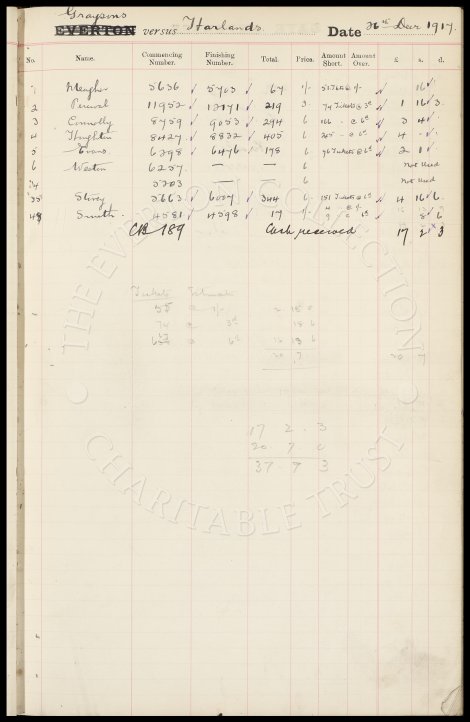 Graysons
EVERTON versus Harlands Date 26th Decr 1917.
No. Name. Commencing Number. Finishing Number. Total. Price. Amount Short. Amount Over. £ s. d.
1 Meagher 5636 5703 67 1/- 16
2 Percival 11952 12171 219 3 74 Tickets @ 3d 1 16 3
3 Connolly 8759 9053 294 6 166 - @ 6d 3 4 -
4 Houghton 8427 8832 405 6 @ 6d 4 -
5 Evans 6298 6476 178 6 96 Tickets @ 6d 2 1
6 Weston 6257 — — 6 Not Used
5203 — — 6 Not Used
35 Storey 5663 6007 344 6 151 Tickets @ 6d 4 16 6
48 Smith 4581 4598 17 1/- 8 6
CB 189 Cash received 17 2 3
Tickets Estimate
55 @ 1/- 2 15 0
74 @ 3d 18 6
@ 6d 16 13 6
20 7 20 7
17 2 . 3
20 7 0
37 - 9 3
THE EVERTON COLLECTION
CHARITABLE TRUST